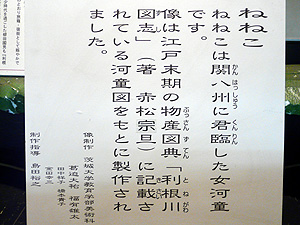 ねねこ
ねねこは関八州に君臨した女河童
です。
像は江戸末期の物産図典「利根川
図志」（著 赤松宗旦）に記載さ
れている河童図をもとに製作され
ました。
像制作 茨城大学教育学部美術科
制作指導 島田裕之